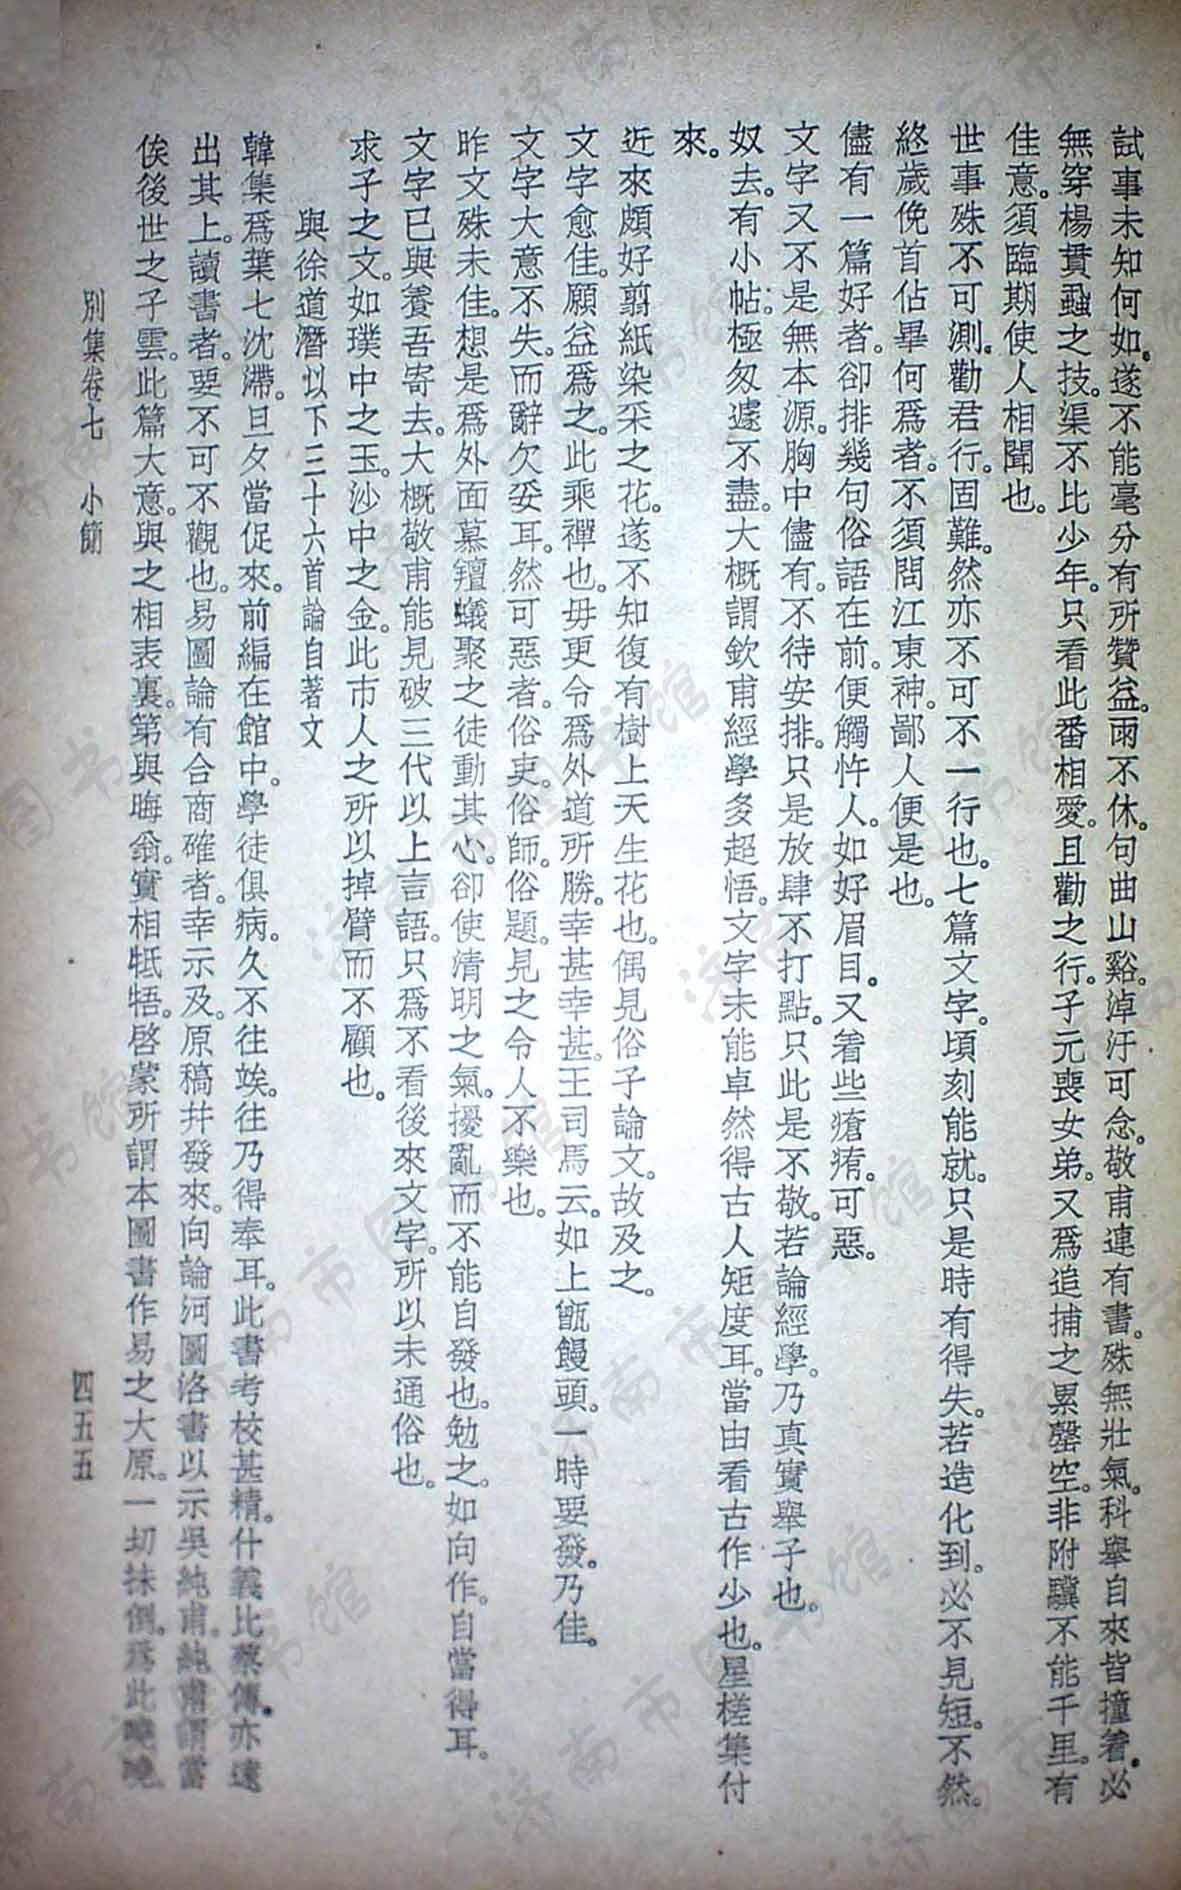 試事未知何如。遂不能毫分有所贊益。雨不休。句曲山谿。淖汙可念。敬甫連有書。殊無壯氣。科舉自來皆撞着。必
無穿楊貫蝨之技。渠不比少年。只看此番相愛。且勸之行。子元喪女弟。又爲追捕之累罄空。非附驥不能千里。有
佳意。須臨期使人相聞也。
世事殊不可測。勸君行。固難。然亦不可不一行也。七篇文字。頃刻能就。只是時有得失。若造化到。必不見短。不然。
終歲俛首佔畢何爲者。不須問江東神。鄙人便是也。
儘有一篇好者。卻排幾句俗語在前。便觸忤人。如好眉目。又着些瘡痏。可惡。
文字又不是無本源。胸中儘有。不待安排。只是放肆不打點。只此是不敬。若論經學。乃真實舉子也。
奴去。有小帖。極匆遽不盡。大概謂欽甫經學多超悟。文字未能卓然得古人矩度耳。當由看古作少也。星槎集付
來。
近來頗好剪紙染采之花。遂不知復有樹上天生花也。偶見俗子論文。故及之。
文字愈佳。願益爲之。此乘禪也。毋更令爲外道所勝。幸甚幸甚。王司馬云。如上甑饅頭。一時要發。乃佳。
文字大意不失。而辭欠妥耳。然可惡者。俗吏。俗師。俗題。見之令人不樂也。
昨文殊未佳。想是爲外面慕羶蟻聚之徒動其心。卻使清明之氣。擾亂而不能自發也。勉之。如向作。自當得耳。
文字已與養吾寄去。大概敬甫能見破三代以上言語。只爲不看後來文字。所以未通俗也。
求子之文。如璞中之玉。沙中之金。此市人之所以掉臂而不顧也。
與徐道潛以下三十六首論自著文
韓集爲葉七沈滯。旦夕當促來。前編在館中。學徒俱病。久不往。竢往乃得奉耳。此書考校甚精。什義比蔡傳。亦遠
出其上。讀書者。要不可不觀也。易圖論有合商確者。幸示及。原稿并發來。向論河圖洛書以示吳純甫。純甫謂當
俟後世之子雲。此篇大意。與之相表裏。第與晦翁。實相牴牾。啓蒙所謂本圖書作易之大原。一切抹倒。爲此曉曉
別集卷七 小簡
四五五